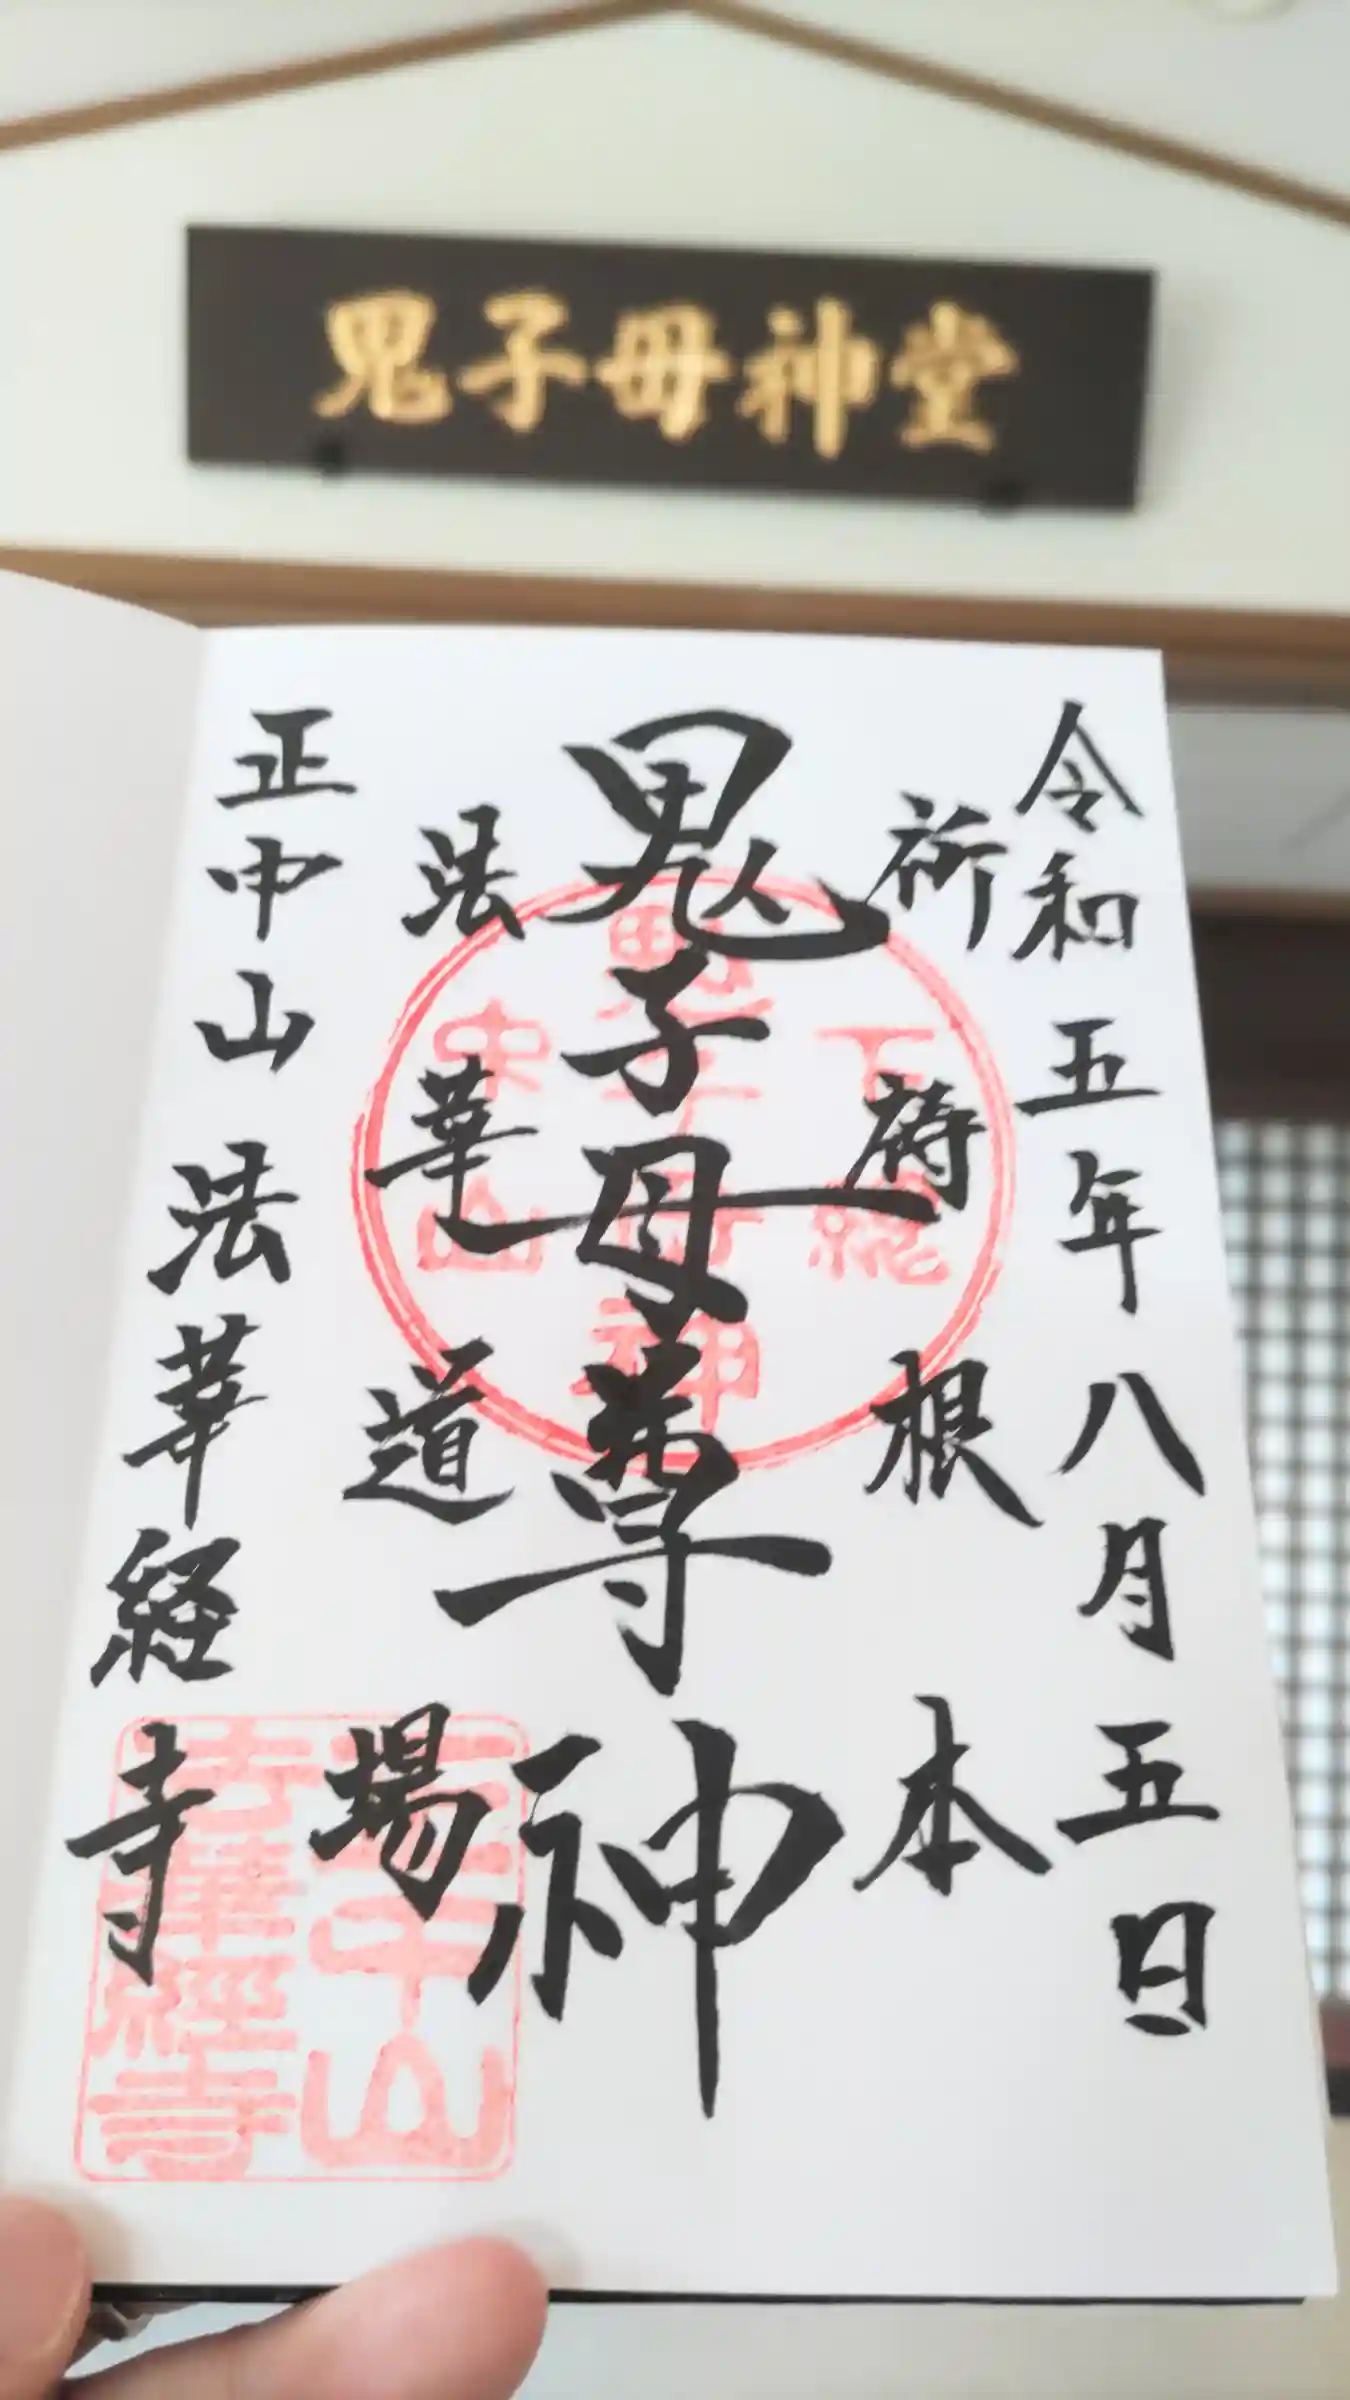 鬼子母神堂
令和五年八月五日
祈祷根本
鬼子母尊神
法華道場
正中山法華経寺
下総
鬼子母神
中山
正中山
法華經寺